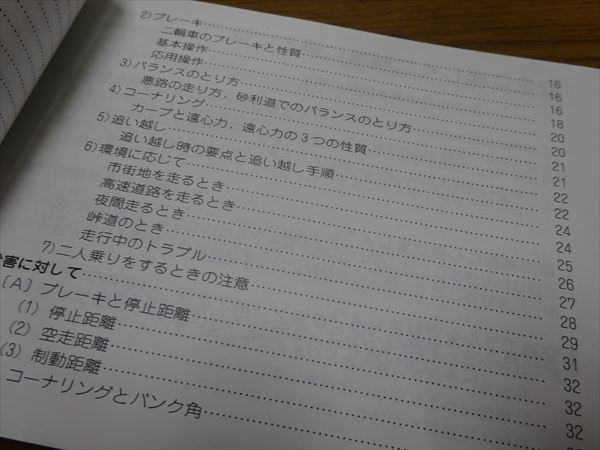 2) ブレーキ……16
二輪車のブレーキと性質……16
基本操作……16
応用操作……18
3) バランスのとり方……20
悪路の走り方、砂利道でのバランスのとり方……20
4) コーナリング……21
カーブと遠心力、遠心力の3つの性質……21
5) 追い越し……22
追い越し時の要点と追い越し手順……22
6) 環境に応じて……24
市街地を走るとき……24
高速道路を走るとき……25
夜間走るとき……26
峠道のとき……27
走行中のトラブル……28
7) 二人乗りをするときの注意……29
害に対して……31
〔A〕ブレーキと停止距離……32
(1) 停止距離……32
(2) 空走距離……32
(3) 制動距離……
コーナリングとバンク角……